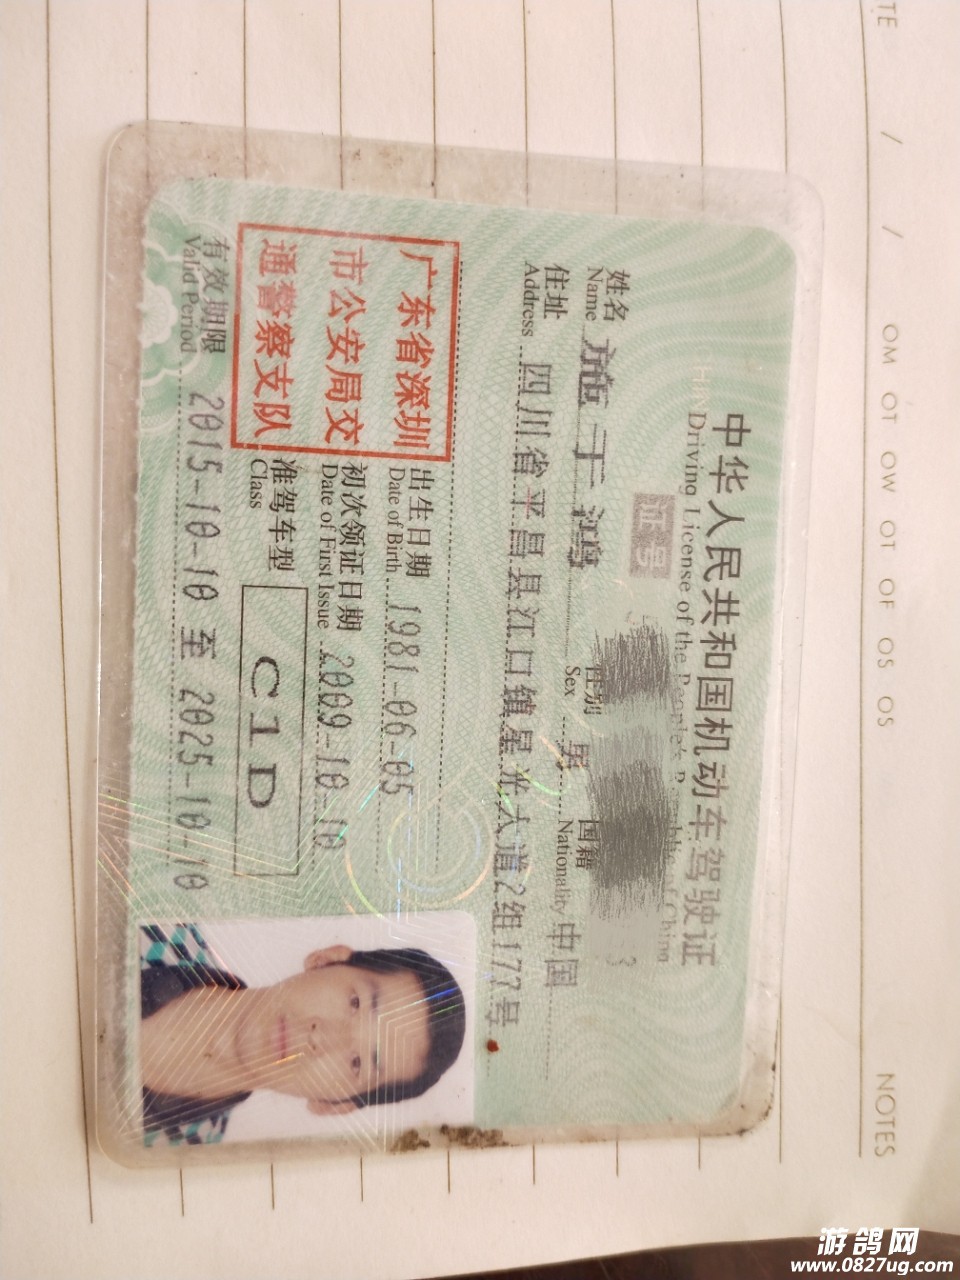 中华人民共和国机动车驾驶证
Driving License of the People's Republic of China
证号
姓名 施于鸿 性别 男 国籍 中国
Name Sex Nationality
住址 四川省平昌县江口镇星光大道2组177号
Address
广东省深圳
市公安局交
通警察支队
出生日期 1981-06-05
Date of Birth
初次领证日期 2009-10-10
Date of First Issue
准驾车型 C1D
Class
有效期限 2015-10-10 至 2025-10-10
Valid Period
TE / / OM OT OW OT OF OS OS
NOTES
游鸽网
www.0827ug.com